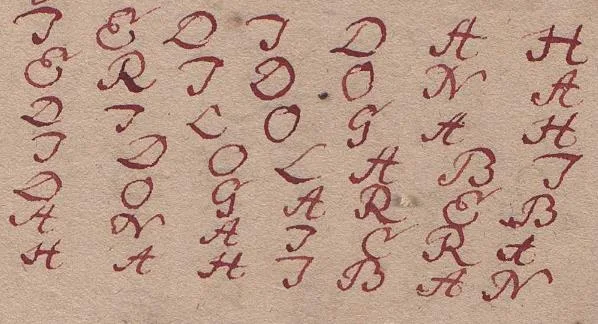 I E D I D A H
E R I D O N A
D I L O G A H
I D O L A B I
D O G A R E B
A N A I E R A
H A H I B A N